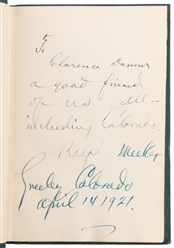 To
Clarence
a good friend
of us all—
including Colorado.
Ralph Meeker
Greeley Colorado
April 14 1921.